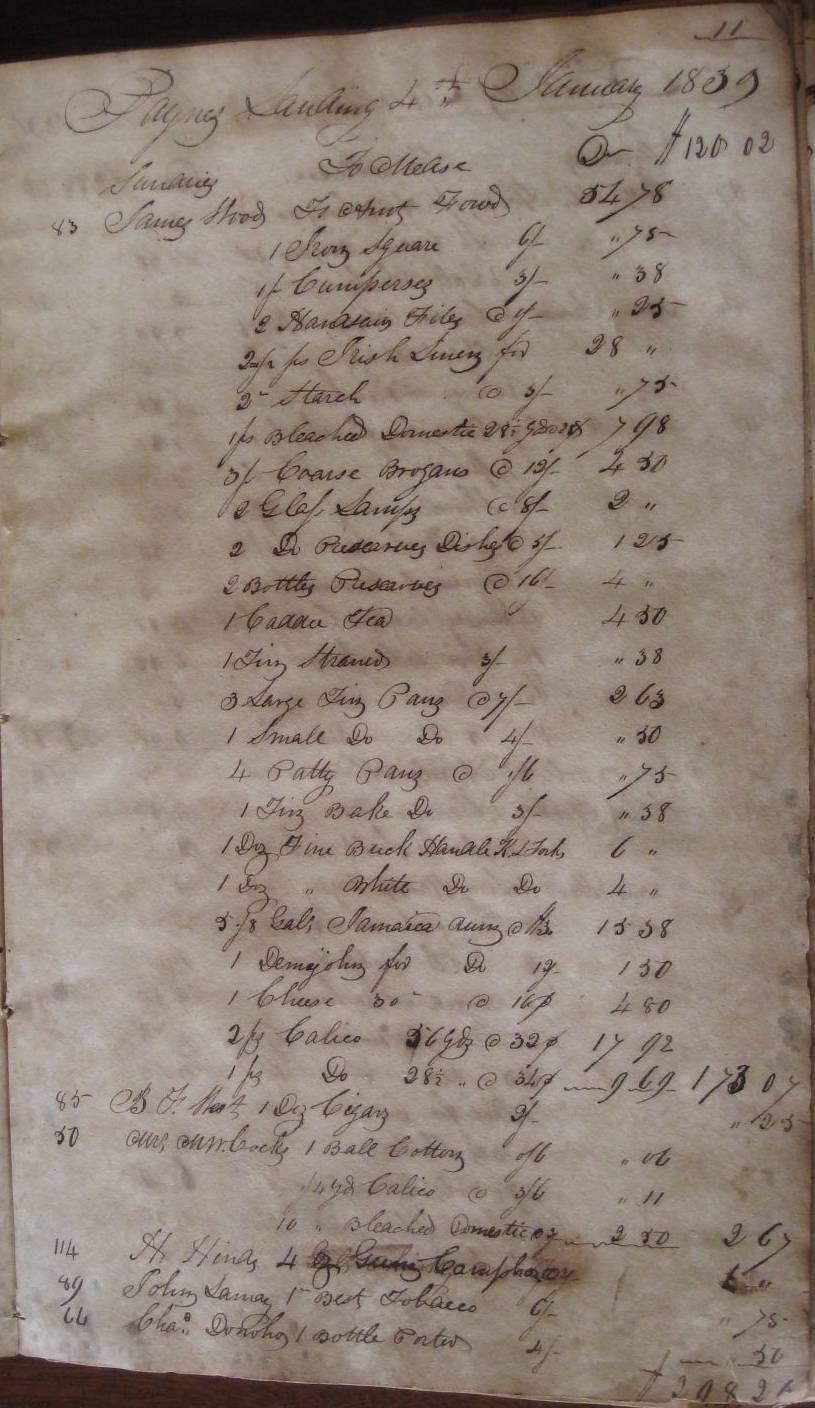 11
Paynes Landing 4th January 1839
Sundries To Mdse Dr $120 02
83 James Wood To amt Ford 54 78
1 Iron Square 6/- " 75
1 pr Cumpersez 3/- " 38
2 Handsaw Files @ 1/- " 25
2 ps Irish Linen for 28 "
2 Starch @ 3/- " 75
1 ps Bleached Domestic 28½ Yds @ 28¢ 7 98
3 pr Coarse Brogans @ 12/- 4 50
2 Glass Lamps @ 8/- 2 "
2 Do Preserves Dishes @ 5/- 1 25
2 Bottles Preserves @ 16/- 4 "
1 Caddie Tea 4 50
1 Tin Strainer 3/- " 38
3 Large Tin Pans @ 7/- 2 63
1 Small Do Do 4/- " 50
4 Patty Pans @ 1/6 " 75
1 Tin Bake Do 3/- " 38
1 Doz Fine Buck Handle K & Forks 6 "
1 Doz " White Do Do 4 "
5 1/8 Gals Jamaica Rum @ $3 15 38
1 Demijohn for Do 12/- 1 50
1 Cheese 30 @ 16¢ 4 80
2 ps Calico 56 Yds @ 32¢ 17 92
1 ps Do 28½ " @ 34¢ 9 69 173 07
85 B F West 1 Doz Cigars 2/- " 25
50 Mrs M W Cocks 1 Ball Cotton 0/6 " 06
1/4 Yd Calico @ 3/6 " 11
10 " Bleached Domestic 2 50 2 67
114 H Hinds 4 Oz Gum Camphor "
89 John Lamay 1 Best Tobacco 6/- " 75
66 Chas Donoho 1 Bottle Porter 4/- " 50
$ 298 26